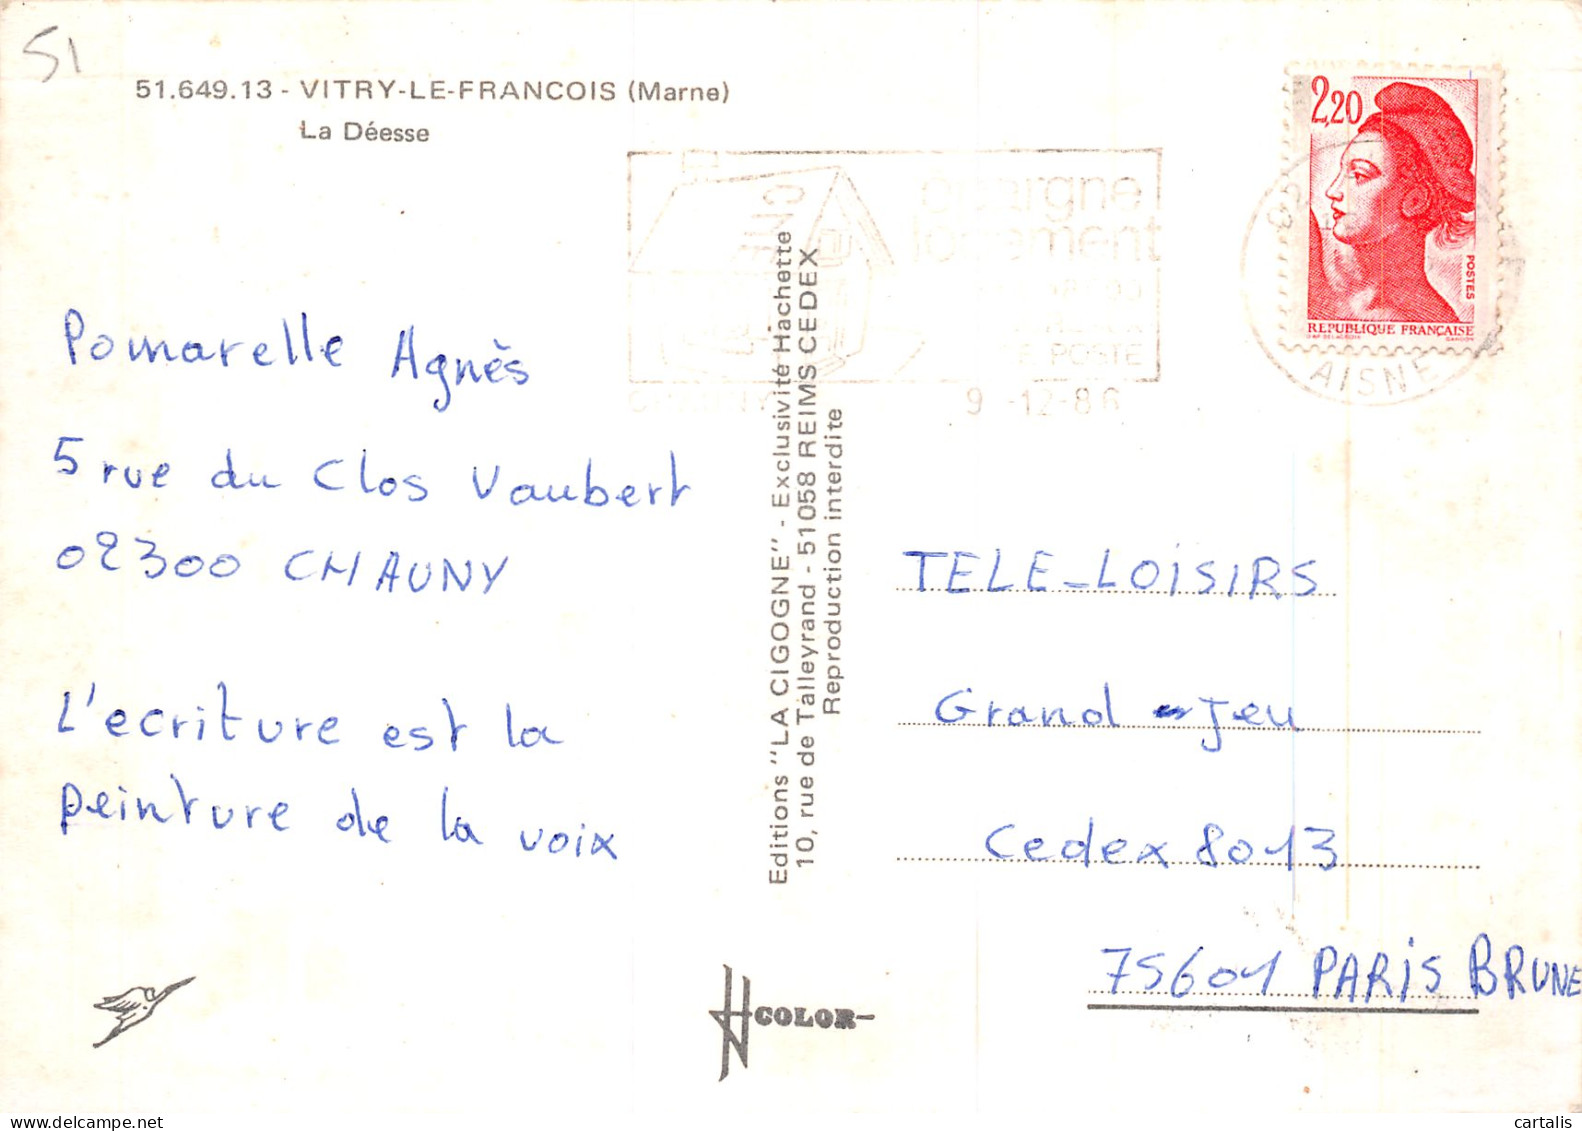 51
51.649.13 - VITRY-LE-FRANCOIS (Marne)
La Déesse
2,20
POSTES
REPUBLIQUE FRANÇAISE
épargne
logement
CNE
LA POSTE
CHAUNY
9 -12-86
AISNE
Pomarelle Agnès
5 rue du Clos Vaubert
02300 CHAUNY
L'ecriture est la
peinture de la voix
Editions "LA CIGOGNE" - Exclusivité Hachette
10, rue de Talleyrand - 51058 REIMS CEDEX
Reproduction interdite
TELE-LOISIRS
Grand-Jeu
Cedex 8013
75601 PARIS BRUNE
COLOR-
cartalis